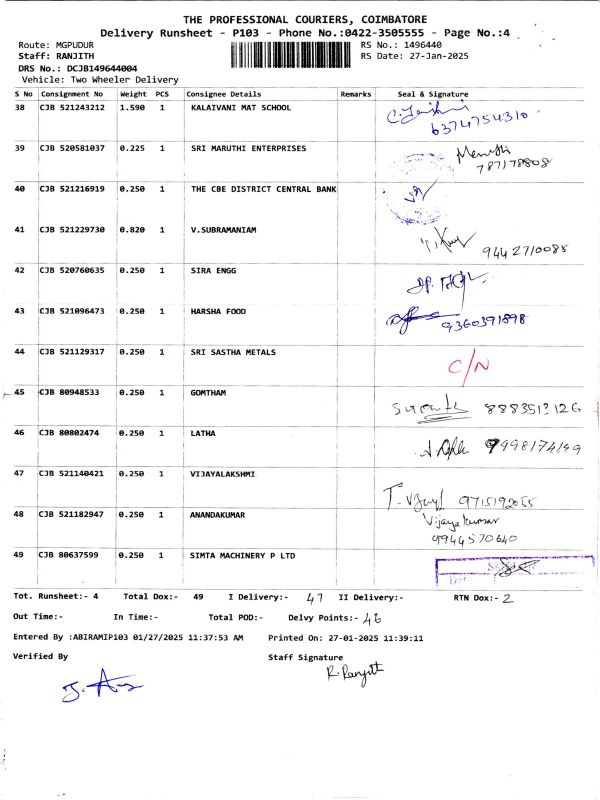 THE PROFESSIONAL COURIERS, COIMBATORE
Delivery Runsheet - P103 - Phone No.:0422-3505555 - Page No.:4
Route: MGPUDUR RS No.: 1496440
Staff: RANJITH RS Date: 27-Jan-2025
DRS No.: DCJB149644004
Vehicle: Two Wheeler Delivery
S No Consignment No Weight PCS Consignee Details Remarks Seal & Signature
38 CJB 521243212 1.590 1 KALAIVANI MAT SCHOOL
6374754310
39 CJB 520581037 0.225 1 SRI MARUTHI ENTERPRISES
787178808
40 CJB 521216919 0.250 1 THE CBE DISTRICT CENTRAL BANK
41 CJB 521229730 0.820 1 V.SUBRAMANIAM
9442710088
42 CJB 520760635 0.250 1 SIRA ENGG
43 CJB 521096473 0.250 1 HARSHA FOOD
9360391898
44 CJB 521129317 0.250 1 SRI SASTHA METALS
C/N
45 CJB 80948533 0.250 1 GOMTHAM
46 CJB 80802474 0.250 1 LATHA
9998174199
47 CJB 521140421 0.250 1 VIJAYALAKSHMI
T. 9715192055
48 CJB 521182947 0.250 1 ANANDAKUMAR Vijayakumar
9944570640
49 CJB 80637599 0.250 1 SIMTA MACHINERY P LTD
Date
Tot. Runsheet:- 4 Total Dox:- 49 I Delivery:- 47 II Delivery:- RTN Dox:- 2
Out Time:- In Time:- Total POD:- Delvy Points:- 46
Entered By :ABIRAMIP103 01/27/2025 11:37:53 AM Printed On: 27-01-2025 11:39:11
Verified By Staff Signature
R. Ranjith